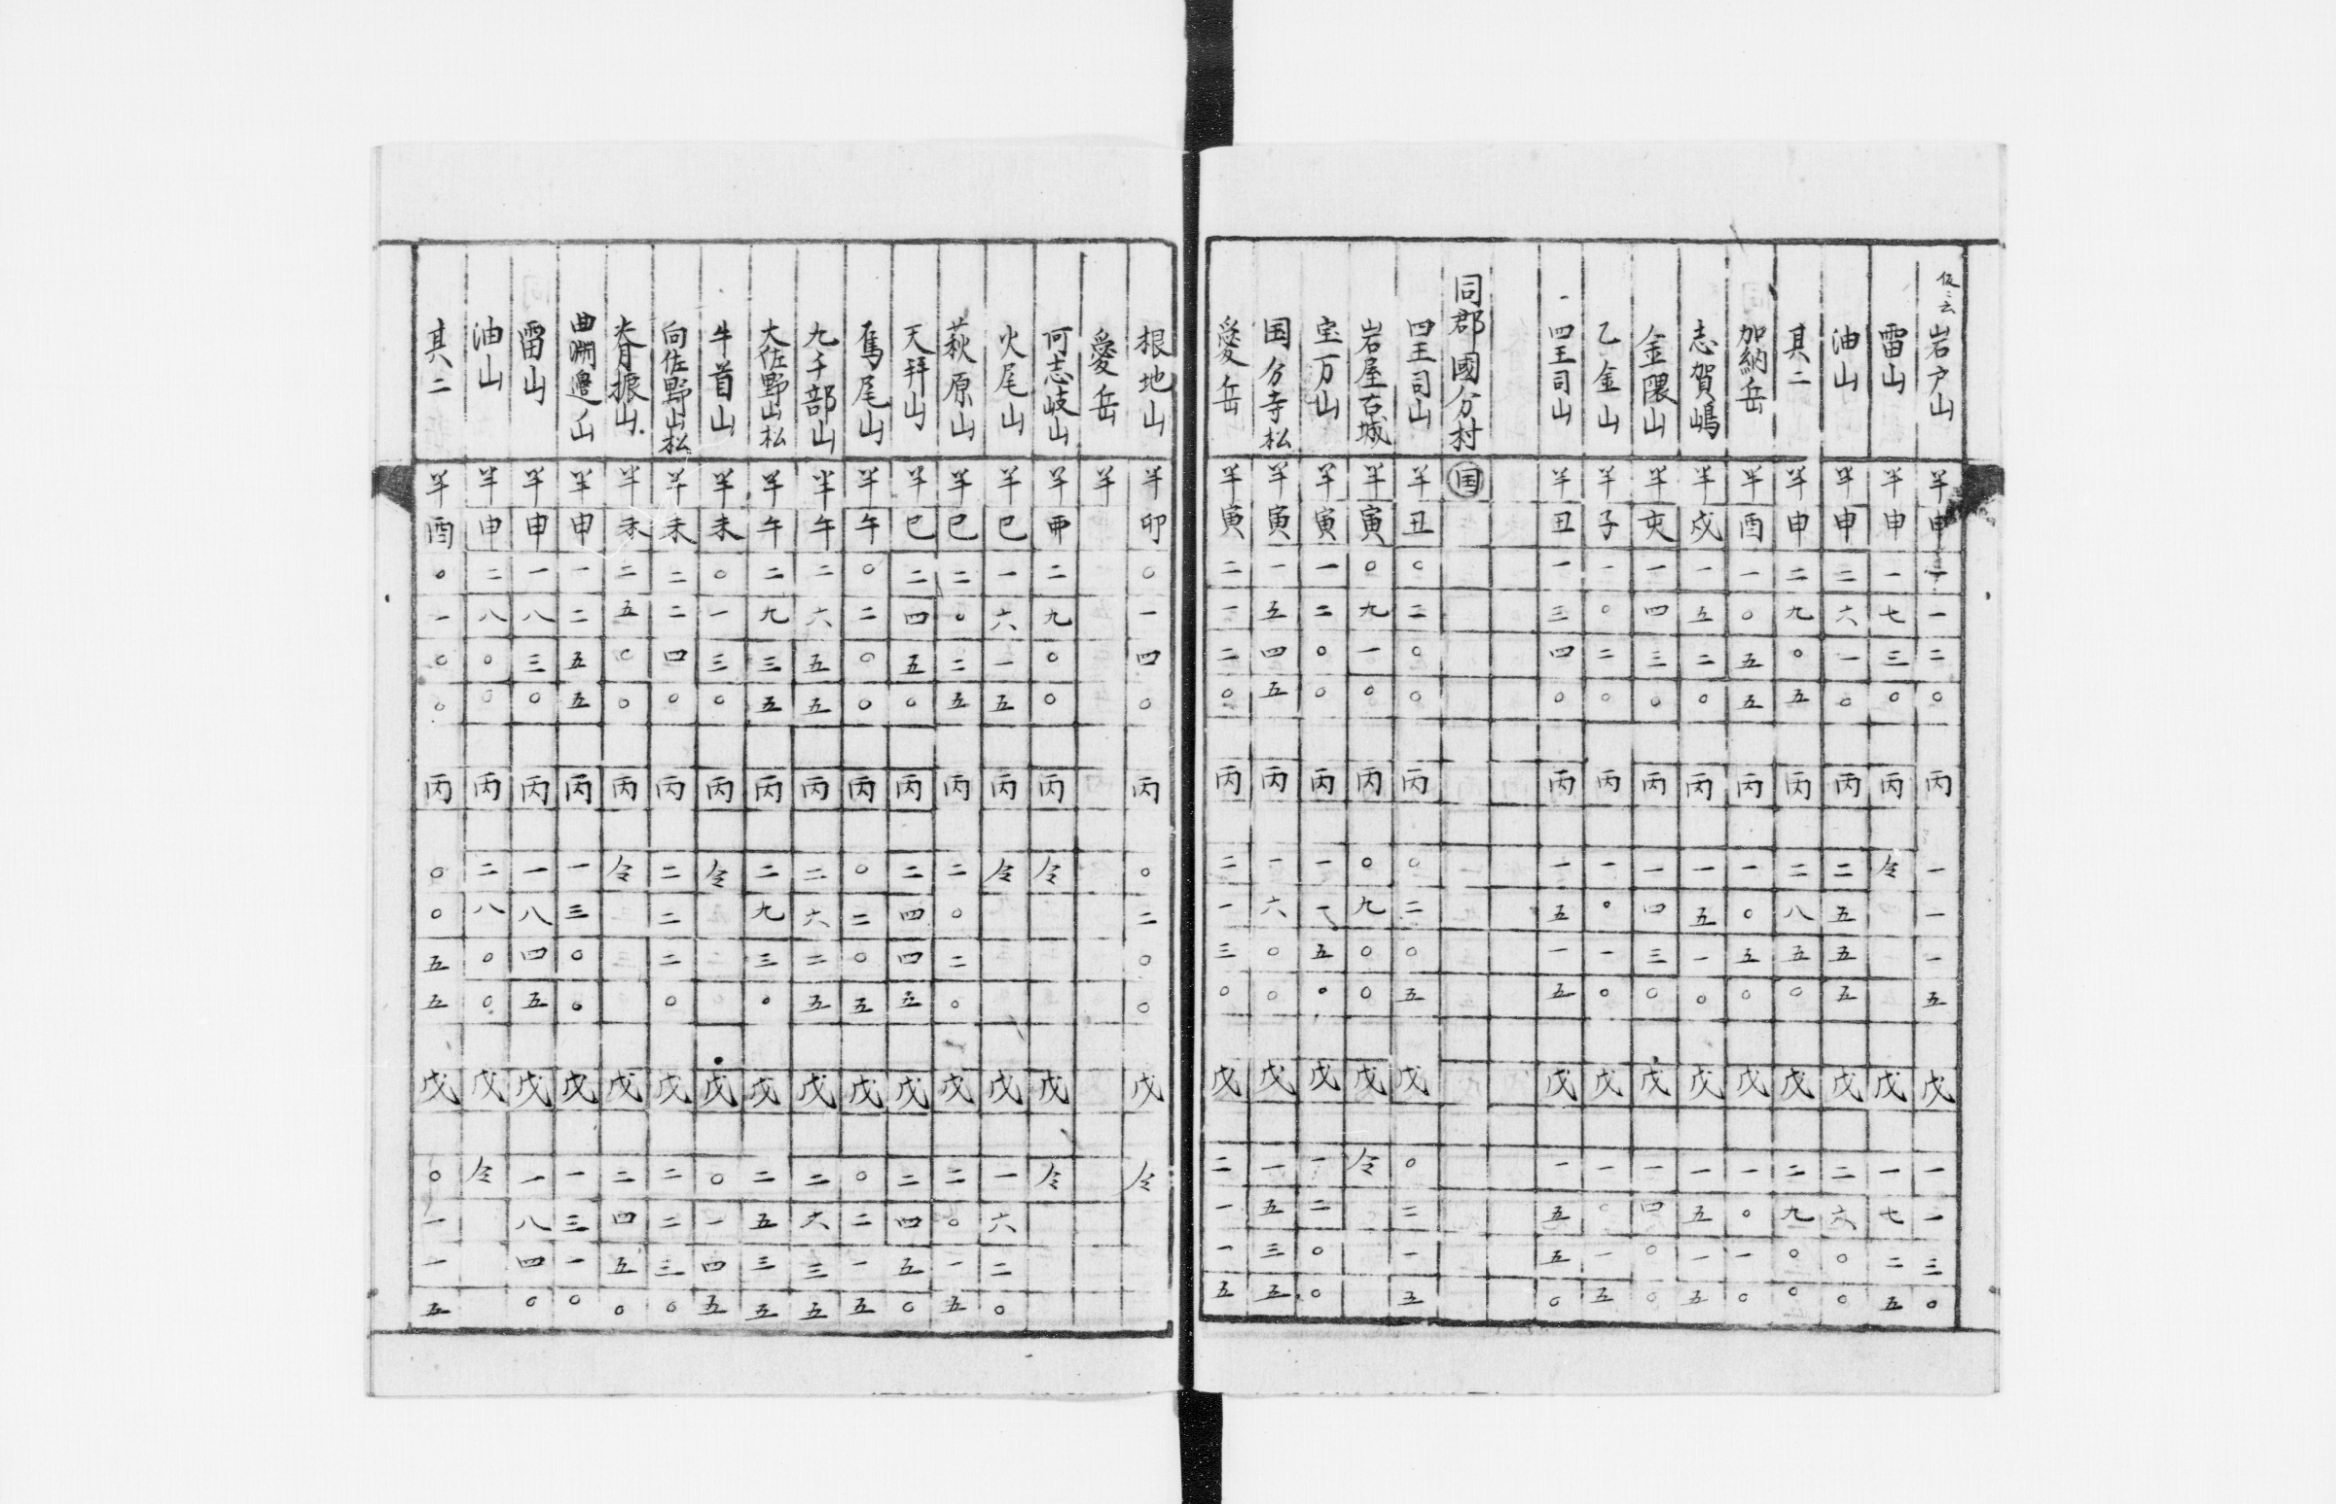 仮ニ云岩戸山 半申 一一二〇 丙 一一一五 戊 一一三〇
雷山 半申 一七三〇 丙 令 戊 一七二五
油山 半申 二六一〇 丙 二五五五 戊 二六〇〇
其二 半申 二九〇五 丙 二八五〇 戊 二九〇〇
加納岳 半酉 一〇五五 丙 一〇五〇 戊 一〇一〇
志賀嶋 半戌 一五二〇 丙 一五一〇 戊 一五一五
金隈山 半亥 一四三〇 丙 一四三〇 戊 一四〇〇
乙金山 半子 一〇二〇 丙 一〇一〇 戊 一〇一五
四王司山 半丑 一三四〇 丙 一五一五 戊 一五五〇
同郡國分村 国
四王司山 半丑 〇二〇〇 丙 〇二〇五 戊 〇二一五
岩屋古城 半寅 〇九一〇 丙 〇九〇〇 戊 令
宝万山 半寅 一二〇〇 丙 一一五〇 戊 一二〇〇
国分寺松 半寅 一五四五 丙 一六〇〇 戊 一五三五
愛岳 半寅 二一二〇 丙 二一三〇 戊 二一一五
根地山 半卯 〇一四〇 丙 〇二〇〇 戊 令
愛岳 半
阿志岐山 半卯 二九〇〇 丙 令 戊 令
火尾山 半巳 一六一五 丙 令 戊 一六二〇
萩原山 半巳 二〇二五 丙 二〇二〇 戊 二〇一五
天拜山 半巳 二四五〇 丙 二四四五 戊 二四五〇
馬尾山 半午 〇二〇〇 丙 〇二〇五 戊 〇二一五
九千部山 半午 二六五五 丙 二六二五 戊 二六三五
大佐野山松 半午 二九三五 丙 二九三〇 戊 二五三五
牛首山 半未 〇一三〇 丙 令 戊 〇一四五
向佐野山松 半未 二二四〇 丙 二二二〇 戊 二二三〇
脊振山 半未 二五〇〇 丙 令 戊 二四五〇
曲渕邉山 半申 一二五五 丙 一三〇〇 戊 一三一〇
雷山 半申 一八三〇 丙 一八四五 戊 一八四〇
油山 半申 二八〇〇 丙 二八〇〇 戊 令
其二 半酉 〇一〇〇 丙 〇〇五五 戊 〇一一五